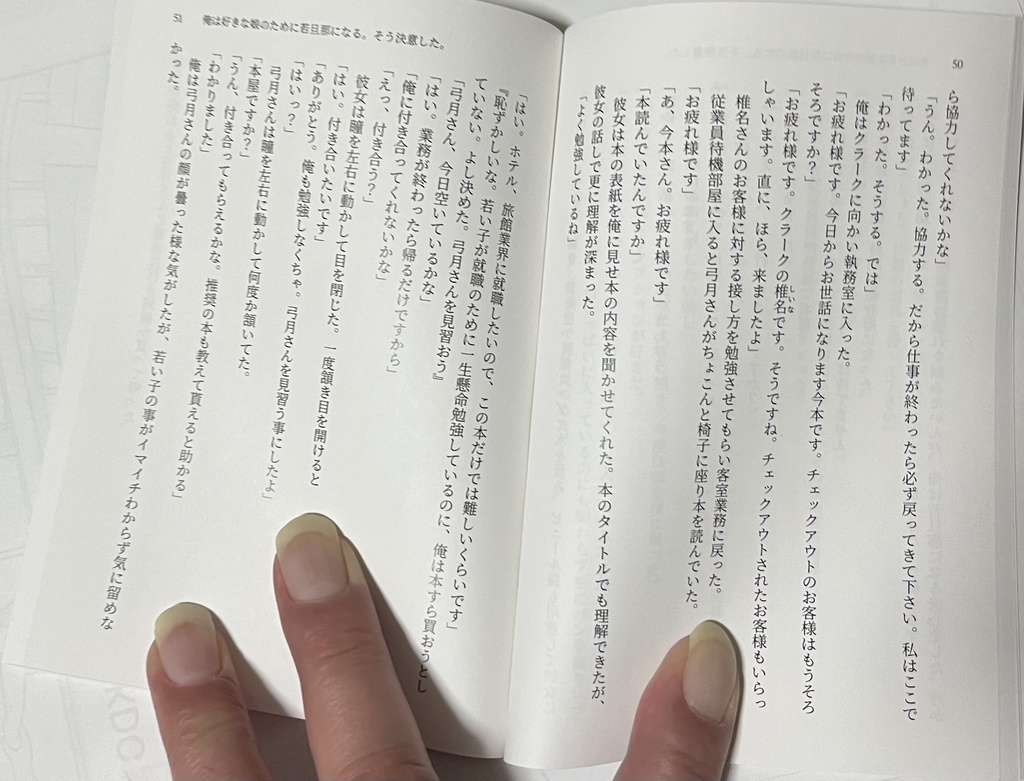 50
ら協力してくれないかな」
「うん。わかった。協力する。だから仕事が終わったら必ず戻ってきて下さい。私はここで
待ってます」
「わかった。そうする。では」
俺はクラークに向かい執務室に入った。
「お疲れ様です。今日からお世話になります今本です。チェックアウトのお客様はもうそろ
そろですか?」
「お疲れ様です。クラークの椎名です。そうですね。チェックアウトされたお客様もいらっ
しいな
しゃいます。直に、ほら、来ましたよ」
椎名さんのお客様に対する接し方を勉強させてもらい客室業務に戻った。
従業員待機部屋に入ると弓月さんがちょこんと椅子に座り本を読んでいた。
「お疲れ様です」
「あ、今本さん。お疲れ様です」
「本読んでいたんですか」
彼女は本の表紙を俺に見せ本の内容を聞かせてくれた。本のタイトルでも理解できたが、
彼女の話しで更に理解が深まった。
「よく勉強しているね」
51 俺は好きな娘のために若旦那になる。そう決意した。
「はい。ホテル、旅館業界に就職したいので、この本だけでは難しいくらいです」
『恥ずかしいな。若い子が就職のために一生懸命勉強しているのに、俺は本すら買おうとし
ていない。よし決めた。弓月さんを見習おう』
「弓月さん、今日空いているかな」
「はい。業務が終わったら帰るだけですから」
「俺に付き合ってくれないかな」
「えっ、付き合う?」
彼女は瞳を左右に動かして目を閉じた。一度頷き目を開けると
「はい。付き合いたいです」
「ありがとう。俺も勉強しなくちゃ。弓月さんを見習う事にしたよ」
「はいっ?」
弓月さんは瞳を左右に動かして何度か頷いてた。
「本屋ですか?」
「うん、付き合ってもらえるかな。推奨の本も教えて貰えると助かる」
「わかりました」
俺は弓月さんの顔が曇った様な気がしたが、若い子の事がイマイチわからず気に留めな
かった。